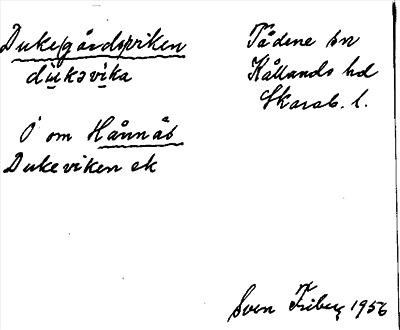 Duke(gårds)viken
dụ̈kəvịka
Ö om Hånnäs
Dukeviken ek
Tådene sn
Kållands hd
Skarab. l.
Sven Friberg 1956